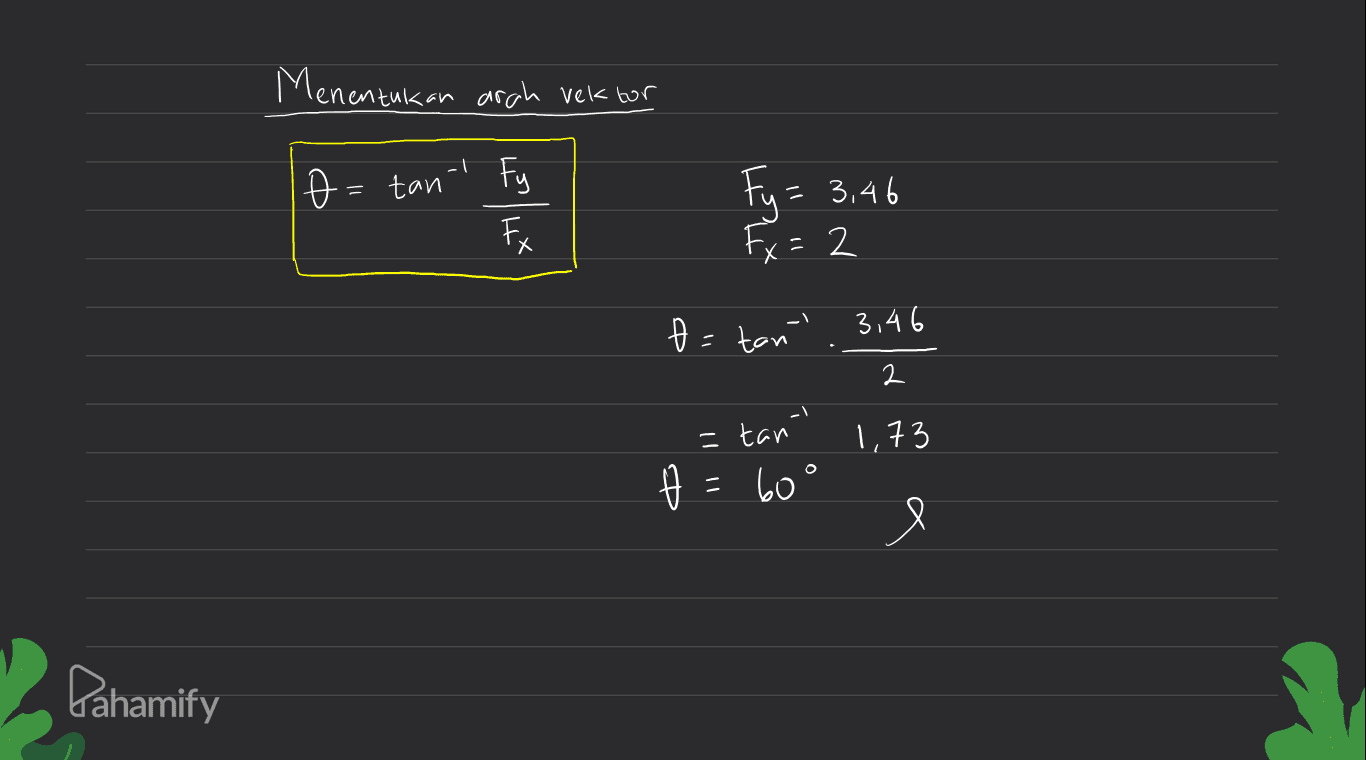 Menentukan arah vektor
θ = tan⁻¹ Fy
Fx
Fy = 3,46
Fx = 2
θ = tan⁻¹ . 3,46
2
= tan⁻¹ 1,73
θ = 60°
Pahamify